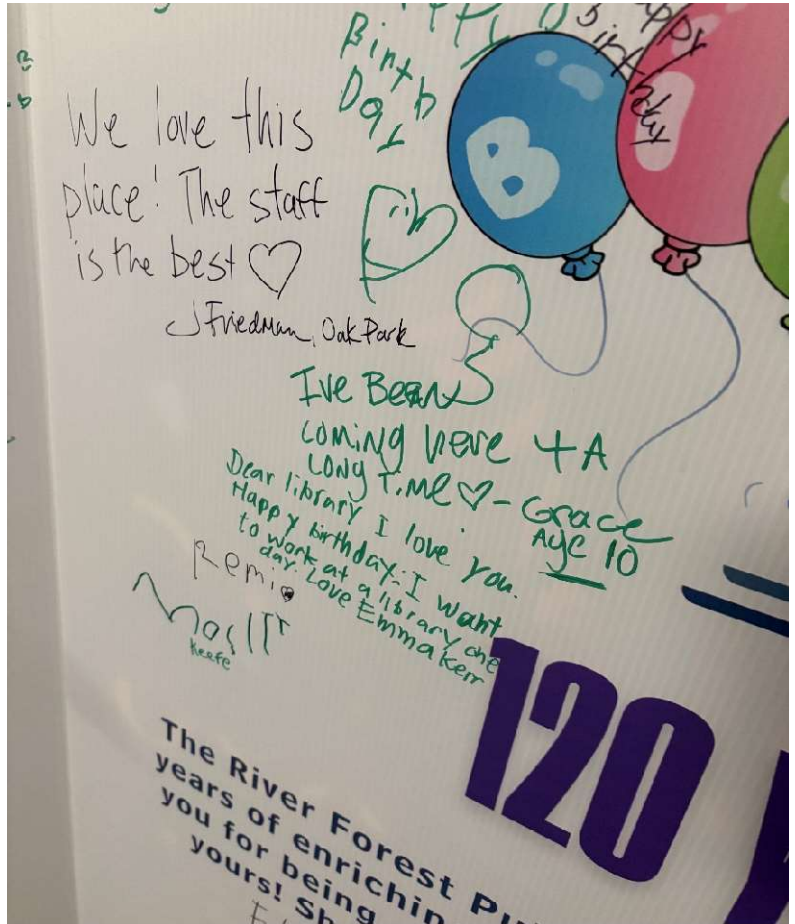 Birth
Day
Happy
Birthday
B
We love this
place! The staff
is the best ♡
J Friedman, Oak Park
Ive Bean
coming here 4 A
LONG TiMe ♡ - Grace
Age 10
Dear library I love you.
Happy birthday. I want
to work at a library one
day. Love Emma Kerr
Remi
keefe
120
The River Forest Pu
years of enrichin
you for being
yours! Sh